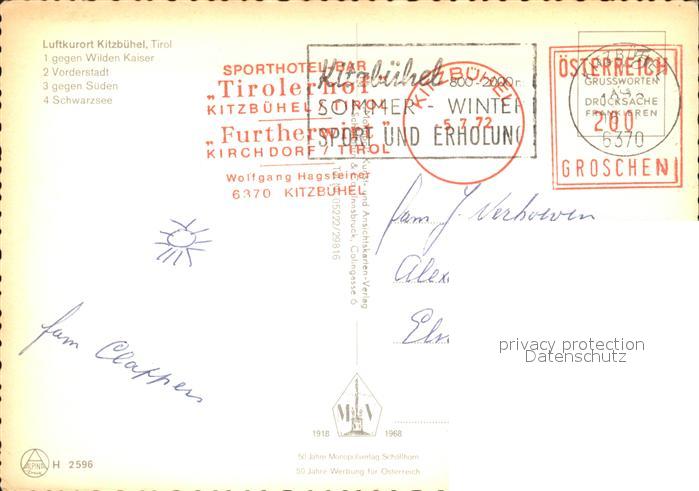 Luftkurort Kitzbühel, Tirol
1 gegen Wilden Kaiser
2 Vorderstadt
3 gegen Süden
4 Schwarzsee
SPORTHOTEL BAR
„Tirolerhof"
KITZBÜHEL / TIROL
„Furtherwirt"
KIRCHDORF / TIROL
Wolfgang Hagsteiner
6370 KITZBÜHEL
Kitzbühel 800-2000m
SOMMER - WINTER
SPORT UND ERHOLUNG
KITZBÜHEL
-5.7.72
6370
ÖSTERREICH
200
GROSCHEN
GRUSSWORTEN
ALS
DRUCKSACHE
FRANKIEREN
und Ansichtskarten-Verlag
Innsbruck, Colingasse 6
05222/29816
fam J. Verhoeven
fam Clappers
privacy protection
Datenschutz
M V
1918 1968
50 Jahre Monopolverlag Schöllhorn
50 Jahre Werbung für Österreich
ALPINA
H 2596